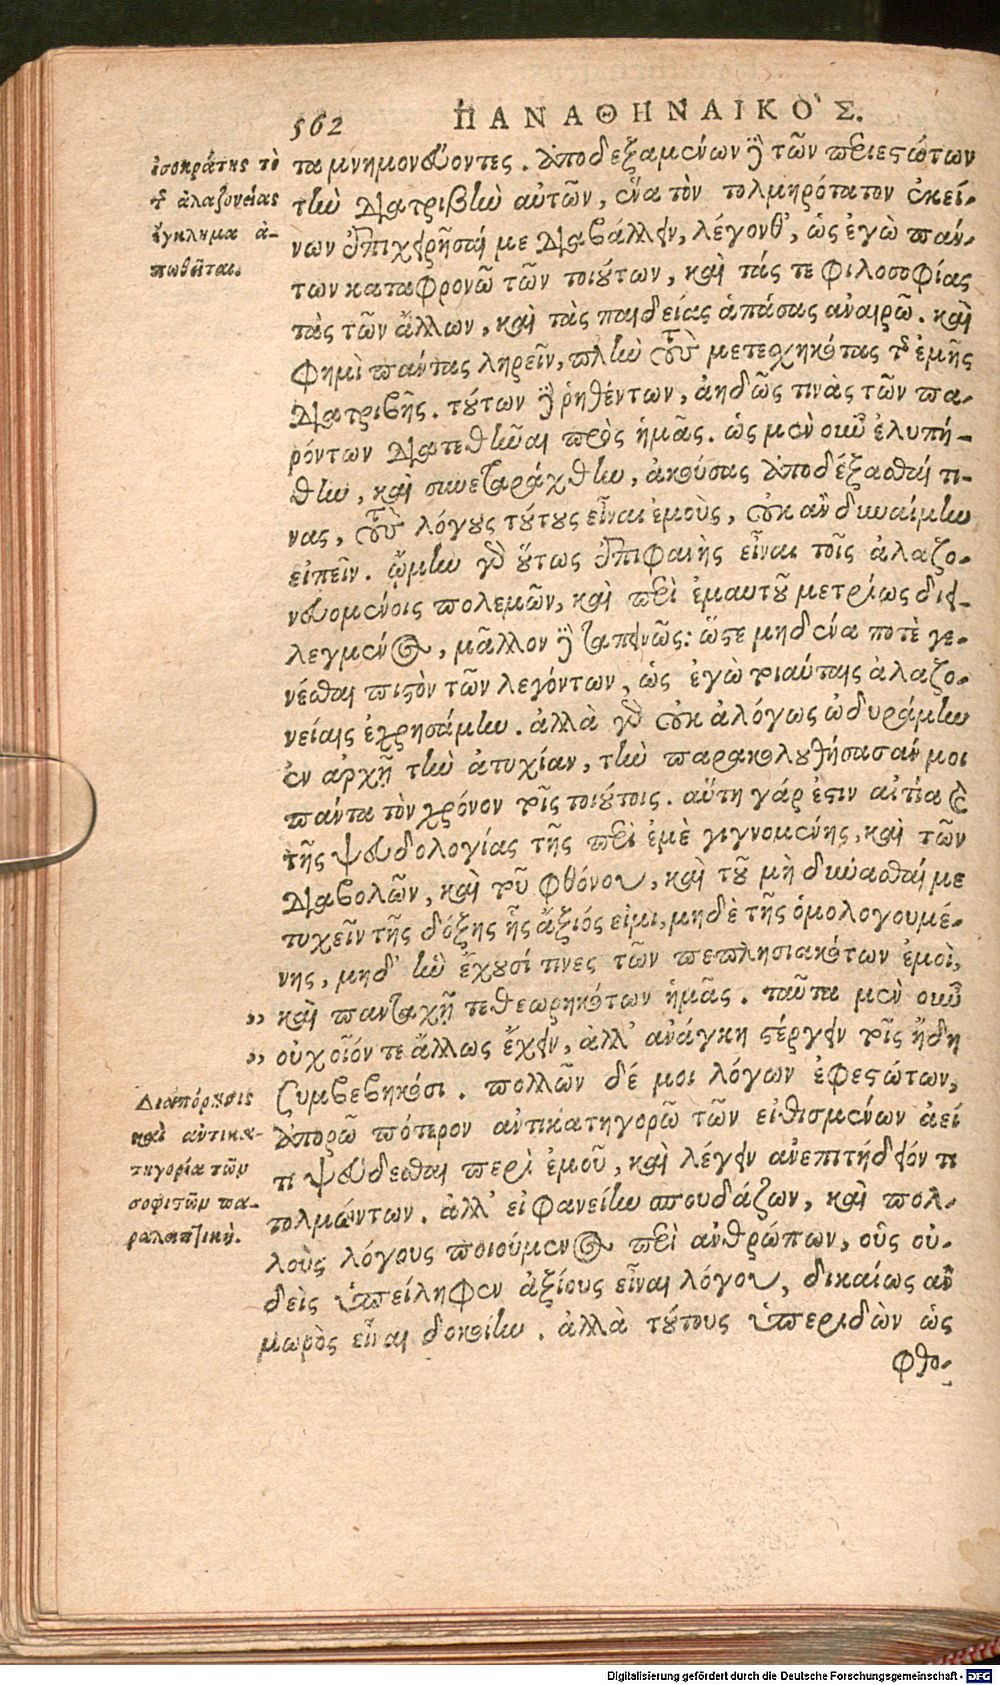 562 ΠΑΝΑΘΗΝΑΙΚΟΣ.
ἰσοκράτης τὸ
τῆς ἀλαζονείας
ἔγκλημα ἀ-
πωθεῖται.
τα μνημονεύοντες. ἀποδεξαμένων δὲ τῶν περιεστώτων
τὴν διατριβὴν αὐτῶν, ἕνα τὸν τολμηρότατον ἐκεί-
νων ἐπιχειρῆσαί με διαβάλλειν, λέγονθ', ὡς ἐγὼ πάν-
των καταφρονῶ τῶν τοιούτων, καὶ τάς τε φιλοσοφίας
τὰς τῶν ἄλλων, καὶ τὰς παιδείας ἁπάσας ἀναιρῶ. καὶ
φημὶ πάντας ληρεῖν, πλὴν τοὺς μετεσχηκότας τῆς ἐμῆς
διατριβῆς. τούτων δὲ ῥηθέντων, ἀηδῶς τινὰς τῶν πα-
ρόντων διατεθῆναι πρὸς ἡμᾶς. ὡς μὲν οὖν ἐλυπή-
θην, καὶ συνεταράχθην, ἀκούσας ἀποδέξασθαί τι-
νας, τοὺς λόγους τούτους εἶναι ἐμοὺς, οὐκ ἂν δυναίμην
εἰπεῖν. ᾤμην γὰρ οὕτως ἐπιφανὴς εἶναι τοῖς ἀλαζο-
νευομένοις πολεμῶν, καὶ περὶ ἐμαυτοῦ μετρίως διει-
λεγμένος, μᾶλλον δὲ ταπεινῶς: ὥστε μηδένα ποτὲ γε-
νέσθαι πιστὸν τῶν λεγόντων, ὡς ἐγὼ τοιαύταις ἀλαζο-
νείαις ἐχρησάμην. ἀλλὰ γὰρ οὐκ ἀλόγως ὠδυράμην
ἐν ἀρχῇ τὴν ἀτυχίαν, τὴν παρακολουθήσασάν μοι
πάντα τὸν χρόνον τοῖς τοιούτοις. αὕτη γάρ ἐστιν αἰτία καὶ
τῆς ψευδολογίας τῆς περὶ ἐμὲ γιγνομένης, καὶ τῶν
διαβολῶν, καὶ τοῦ φθόνου, καὶ τοῦ μὴ δύνασθαί με
τυχεῖν τῆς δόξης ἧς ἄξιός εἰμι, μηδὲ τῆς ὁμολογουμέ-
νης, μηδ' ἣν ἔχουσί τινες τῶν πεπλησιακότων ἐμοὶ,
,, καὶ πανταχῇ τεθεωρηκότων ἡμᾶς. ταῦτα μὲν οὖν
,, οὐχ οἷόν τε ἄλλως ἔχειν, ἀλλ' ἀνάγκη στέργειν τοῖς ἤδη
συμβεβηκόσι. πολλῶν δέ μοι λόγων ἐφεστώτων,
Διαπόρησις
καὶ ἀντικα-
τηγορία τῶν
σοφιστῶν πα-
ραλειπτική.
ἀπορῶ πότερον ἀντικατηγορῶ τῶν εἰθισμένων ἀεί
τι ψεύδεσθαι περὶ ἐμοῦ, καὶ λέγειν ἀνεπιτήδειόν τι
τολμώντων. ἀλλ' εἰ φανείην σπουδάζων, καὶ πολ-
λοὺς λόγους ποιούμενος περὶ ἀνθρώπων, οὓς οὐ-
δεὶς ὑπείληφεν ἀξίους εἶναι λόγου, δικαίως ἂν
μωρὸς εἶναι δοκοίην. ἀλλὰ τούτους ὑπεριδὼν ὡς
φθο-
Digitalisierung gefördert durch die Deutsche Forschungsgemeinschaft - DFG